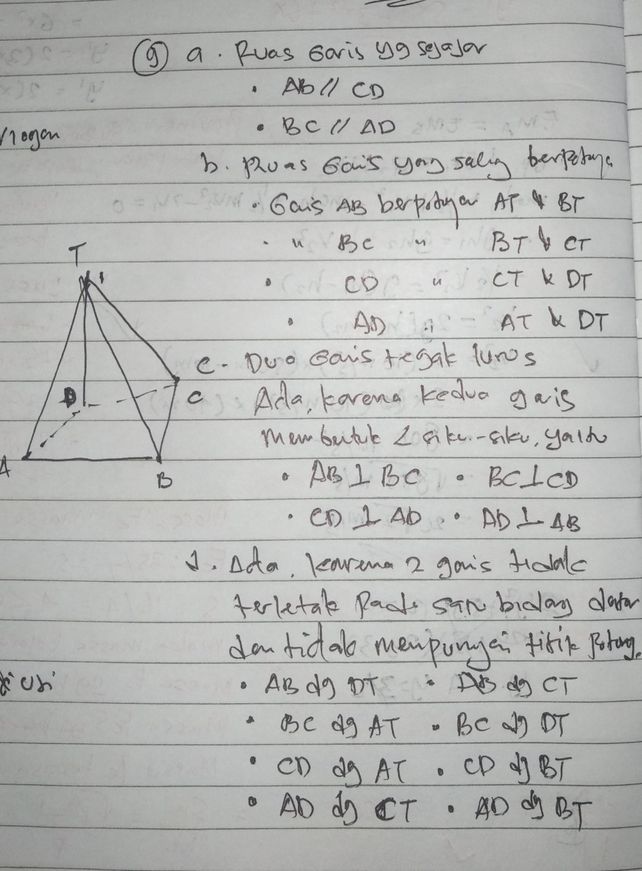 9 a. Ruas Garis yg sejajar
• AB // CD
• BC // AD
b. Ruas Garis yang saling berpotongan
• Garis AB berpotongan AT & BT
• " BC " BT & CT
• CD " CT & DT
• AD " AT & DT
T
C. Dua Garis tegak lurus
D
C
Ada, karena kedua garis
membentuk ∠ siku-siku, yaitu
A
B
• AB ⊥ BC • BC ⊥ CD
• CD ⊥ AD • AD ⊥ AB
d. Ada, karena 2 garis tidak
terletak Pada satu bidang datar
dan tidak mempunyai titik Potong.
• AB dg DT • AB dg CT
• BC dg AT • BC dg DT
• CD dg AT • CD dg BT
• AD dg CT • AD dg BT